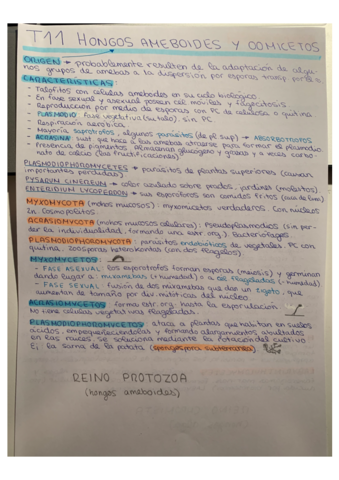 T11 HONGOS AMEBOIDES Y OOMICETOS
ORIGEN → probablemente resulten de la adaptación de algu-
nos grupos de amebas a la dispersión por esporas transp. por la
CARACTERÍSTICAS:
- Talofitos con células ameboides en su ciclo biológico
- En fase sexual y asexual poseen cel móviles y fagocitosis
- Reproducción por medio de esporas con PC de celulosa o quitina
- PLASMODIO: fase vegetativa (su talo), sin PC
- Respiración aerótica
- Mayoría saprótrofos, algunos parásitos (de pl sup) → ABSORBOTROFOS
- ACRASINA: sust que hace a las amebas atraerse para formar el plasmodio
- Presencia de pigmentos, almacenan glucógeno y grasas y a veces carbo-
nato de calcio (las fructificaciones)
PLASMODIOPHOROMYCETES → parásitos de plantas superiores (causan
importantes pérdidas)
PYSARUM CINEREUM → color azulado sobre prados, jardines (molestos)
ENTERIDIUM LYCOPERDON → sus esporóforos son comidos fritos
MYXOMYCOTA (mohos mucosos): myxomicetos verdaderos. Con núcleos
2n. Cosmopolitas
ACRASIOMYCOTA (mohos mucosos celulares): Pseudoplasmodios (sin per-
der la individualidad, formando una estr org.) Bacteriófagos
PLASMODIOPHOROMYCOTA: parásitos endobióticos de vegetales. PC con
quitina, zoosporas heterokontas (con dos flagelos)
MYXOMYCETOS
- FASE ASEXUAL: los esporófros forman esporas (meiosis) y germinan
dando lugar a mixamebas (↓humedad) o a cel flageladas (↑humedad)
- FASE SEXUAL: fusión de dos mixametas que dan un zigoto, que
aumentan de tamaño por div mitóticas del núcleo
ACRASIOMYCETOS: forma estr. org. hasta la esporulación
No tiene células vegetativas flageladas.
PLASMODIOPHOROMYCETOS ataca a plantas que habitan en suelos
ácidos, empequeñeciéndolas y formando alargamientos abultados
en las raíces. Se soluciona mediante la rotación del cultivo
Ej: la sarna de la patata (spongospora subterranea)
REINO PROTOZOA
(hongos ameboides)